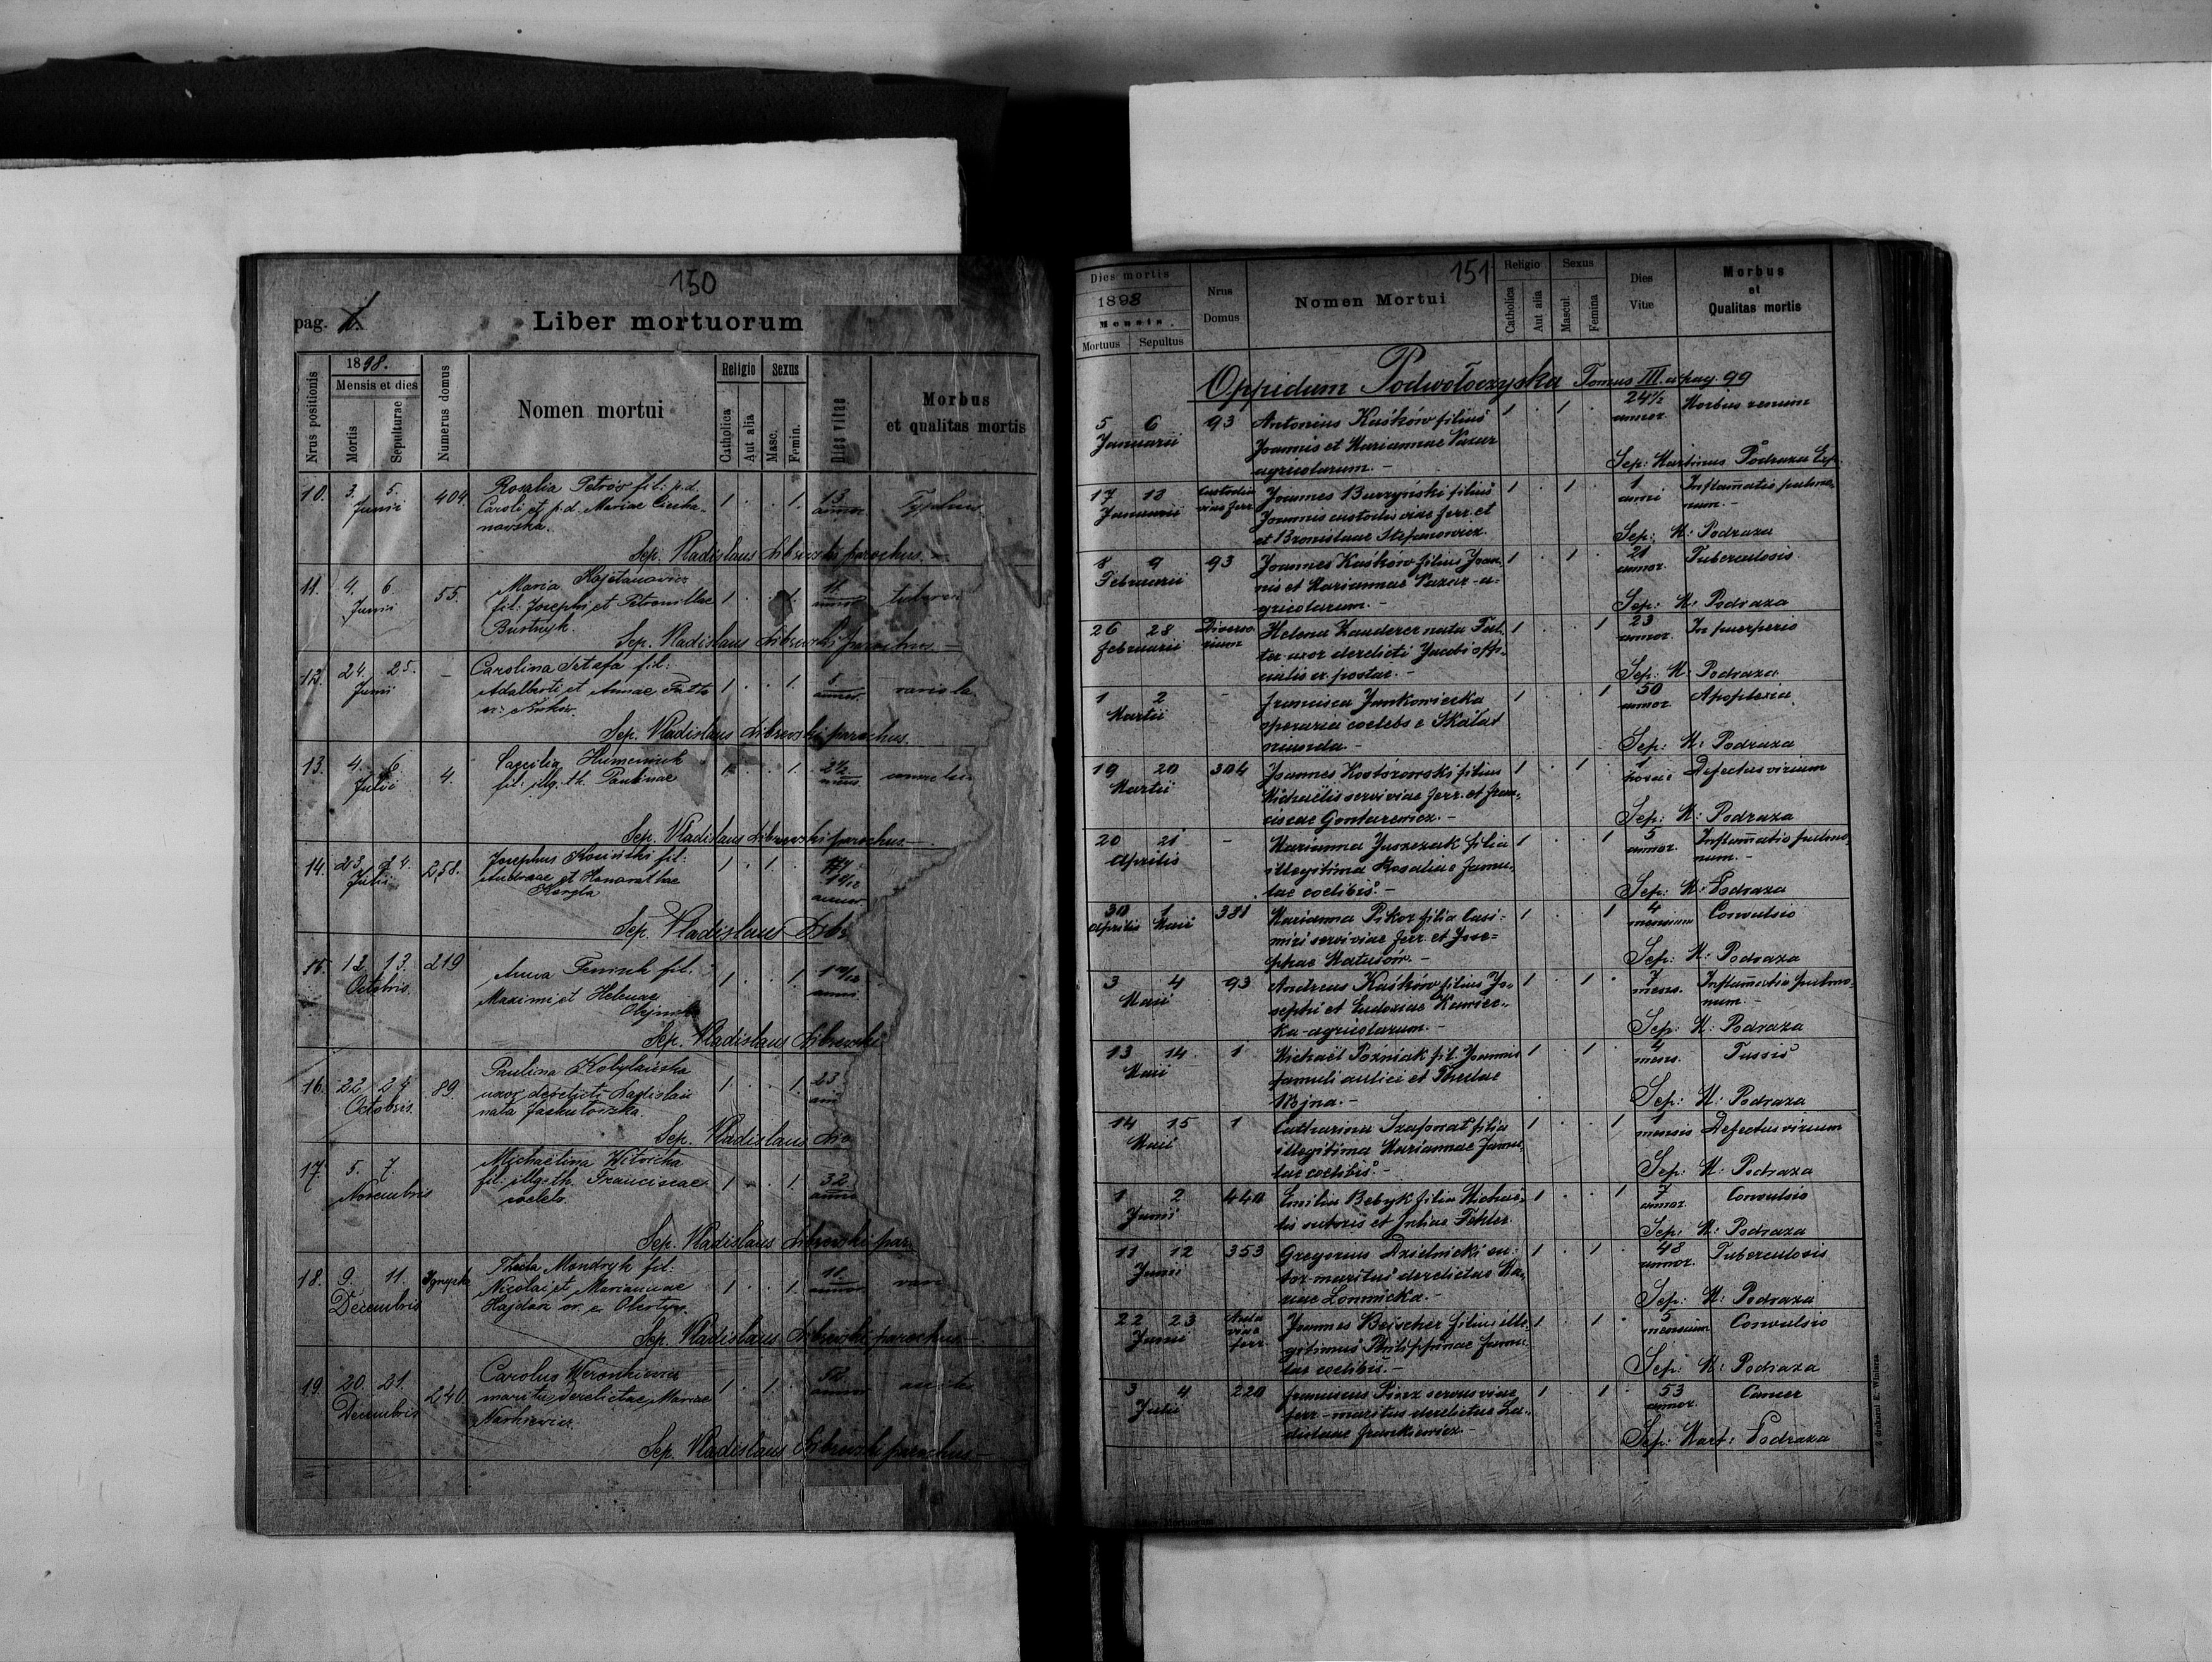 150
pag. 1.
Liber mortuorum
Nrus positionis
1898.
Mensis et dies
Mortis
Sepulturae
Numerus domus
Nomen mortui
Religio
Catholica
Aut alia
Sexus
Masc.
Femin.
Dies vitae
Morbus
et qualitas mortis
10. 3. 5. 404. Rosalia Petrów fil: p.d. 1 . . 1. 13
Junii Caroli et p.d. Mariae Ciecha- annor. Typhus
nowska.
Sep. Vladislaus Librewski parochus.-
11. 4. 6. 55. Maria Kajetanowicz 1 . . 1. 11.
Junii fil: Josephi et Petronillae
Sep. Vladislaus Librewski parochus.-
12. 24. 25. - Carolina fil: 1 . . 1. 5.
Junii Adalberti et Annae annor. variola
Sep. Vladislaus Librewski parochus.
13. 4. 6. 4. Humeniuk 1 . . 1. 2½
Julii fil: illg. th. Paulinae
Sep. Vladislaus Librewski parochus.-
14. 23. 24. 258. Josephus Kosiński fil: 1 . 1 .
Julii Andreae et Honorathae
Kargla annor.
Sep. Vladislaus Libr
15. 12. 13. 219 Anna fil: 1 . . 1
Octobris. Maximi et Helenae anni
Sep. Vladislaus Librewski
16. 22. 24 89. Paulina Kobylańska
Octobris. uxor derelicti Ladislai 1. . . 1. 23
nata
Sep. Vladislaus Lib
17. 5. 7. Michaëlina Witwicka
Novembris fil: illg. th. Franciscae 1 . . 1. 32
coelebs.
Sep. Vladislaus Librewski par
18. 9. 11. Thecla Mondryk fil:
Decembris Nicolai et Mariannae 1. . . 1. 18. vari
Hajdan or. e Obertyn.
Sep. Vladislaus Librewski parochus.-
19. 20. 21. 240. Carolus Weronkiewicz
Decembris maritus derelictae Mariae 1 . 1 . 52.
Narkiewicz.
Sep. Vladislaus Librewski parochus.-
151
Dies mortis
1898
Mensis
Mortuus
Sepultus
Nrus
Domus
Nomen Mortui
Religio
Catholica
Aut alia
Sexus
Mascul.
Femina
Dies
Vitæ
Morbus
et
Qualitas mortis
Oppidum Podwołoczyska Tomus III. a pag. 99
5 6 93 Antonius Kaśków filius 1 . 1 . 24½ Morbus renum
Januarii Joannis et Mariannae Mazur annor.
agricolarum.-
Sep: Martinus Podraza Exp.
17 18 Custodia Joannes Burzyński filius 1 . 1 . 1 Inflam̄atio pulmo-
Januarii viae ferr. Joannis custodis viae ferr. et anni num.-
et Bronislaae Stefanowicz Sep: M: Podraza
8 9 93 Joannes Kaśków filius Joan- 1 . 1 . 21 Tuberculosis
Februarii nis et Mariannae Mazur-a- annor.
gricolarum.- Sep: M: Podraza
26 28 Diverso- Helena Kanderer nata Fal- 1 . . 1 23 In puerperio
februarii rium ter uxor derelicti Jacobi offi- annor.
cialis ex postae.- Sep: M: Podraza
1 2 - francisca Jankowiecka 1 . . 1 50 Apoplexia
Martii operaria coelebs e Skałat annor.
oriunda.- Sep: M: Podraza
19 20 304 Joannes Kostórowski filius 1 . 1 . 1 Defectus virium
Martii Michaëlis servi viae ferr. et fran- horae
ciscae Gontarewicz.- Sep: M: Podraza
20 21 - Marianna Juszczak filia 1 . . 1 5 Inflam̄atio pulmo-
aprilis illegitima Rosaliae famu- annor. num.-
lae coelibis.- Sep: M: Podraza
30 1 381 Marianna Pikor filia Casi- 1 . . 1 4 Convulsio
aprilis Maii miri servi viae ferr. et Jose- mensium
phae Matusów.- Sep: M: Podraza
3 4 93 Andreas Kaśków filius Jo- 1 . 1 . 7 Inflam̄atio pulmo-
Maii sephi et Eudoxiae Kamiec- mens. num.-
ka-agricolarum.- Sep: M: Podraza
13 14 1 Michaël Poźniak fil. Joannis 1 . 1 . 4 Tussis
Maii famuli aulici et Theclae mens.
Wojna.- Sep: M: Podraza
14 15 1 Catharina Szafonat filia 1 . . 1 1 Defectus virium
Maii illegitima Mariannae famu- mensis
lae coelibis.- Sep: M: Podraza
1 2 440 Emilia Bebyk filia Michaë- 1 . . 1 7 Convulsio
Junii lis sutoris et Juliae Fehler. annor.
Sep: M: Podraza
11 12 353 Gregorius Dzielnicki su- 1 . 1 . 48 Tuberculosis
Junii tor-maritus derelictae Ma- annor.
riae Łomnicka.- Sep: M: Podraza
22 23 viae Joannes Bejscher filius ille- 1 . 1 . 5 Convulsio
Junii ferr. gitimus Philippinae famu- mensium
lae coelibis.- Sep: M: Podraza
3 4 220 franciscus Pinz servus viae 1 . 1 . 53 Cancer
Julii ferr-maritus derelictae La- annor.
dislaae frankiewicz.- Sep: Mart: Podraza
Z drukarni E. Winiarza